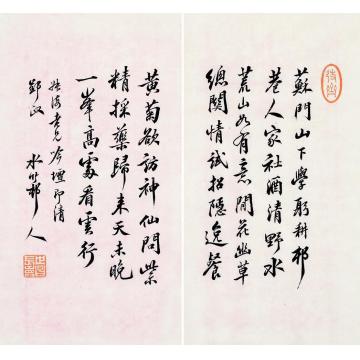 蘇門山下學躬耕邨
巷人家社酒清野水
荒山如有意閒花幽草
總關情試招隱逸餐
黃菊欲訪神仙問紫
精採藥歸來天未晚
一峯高處看雲行
海吾兄吟壇即清
郢政
水竹邨人